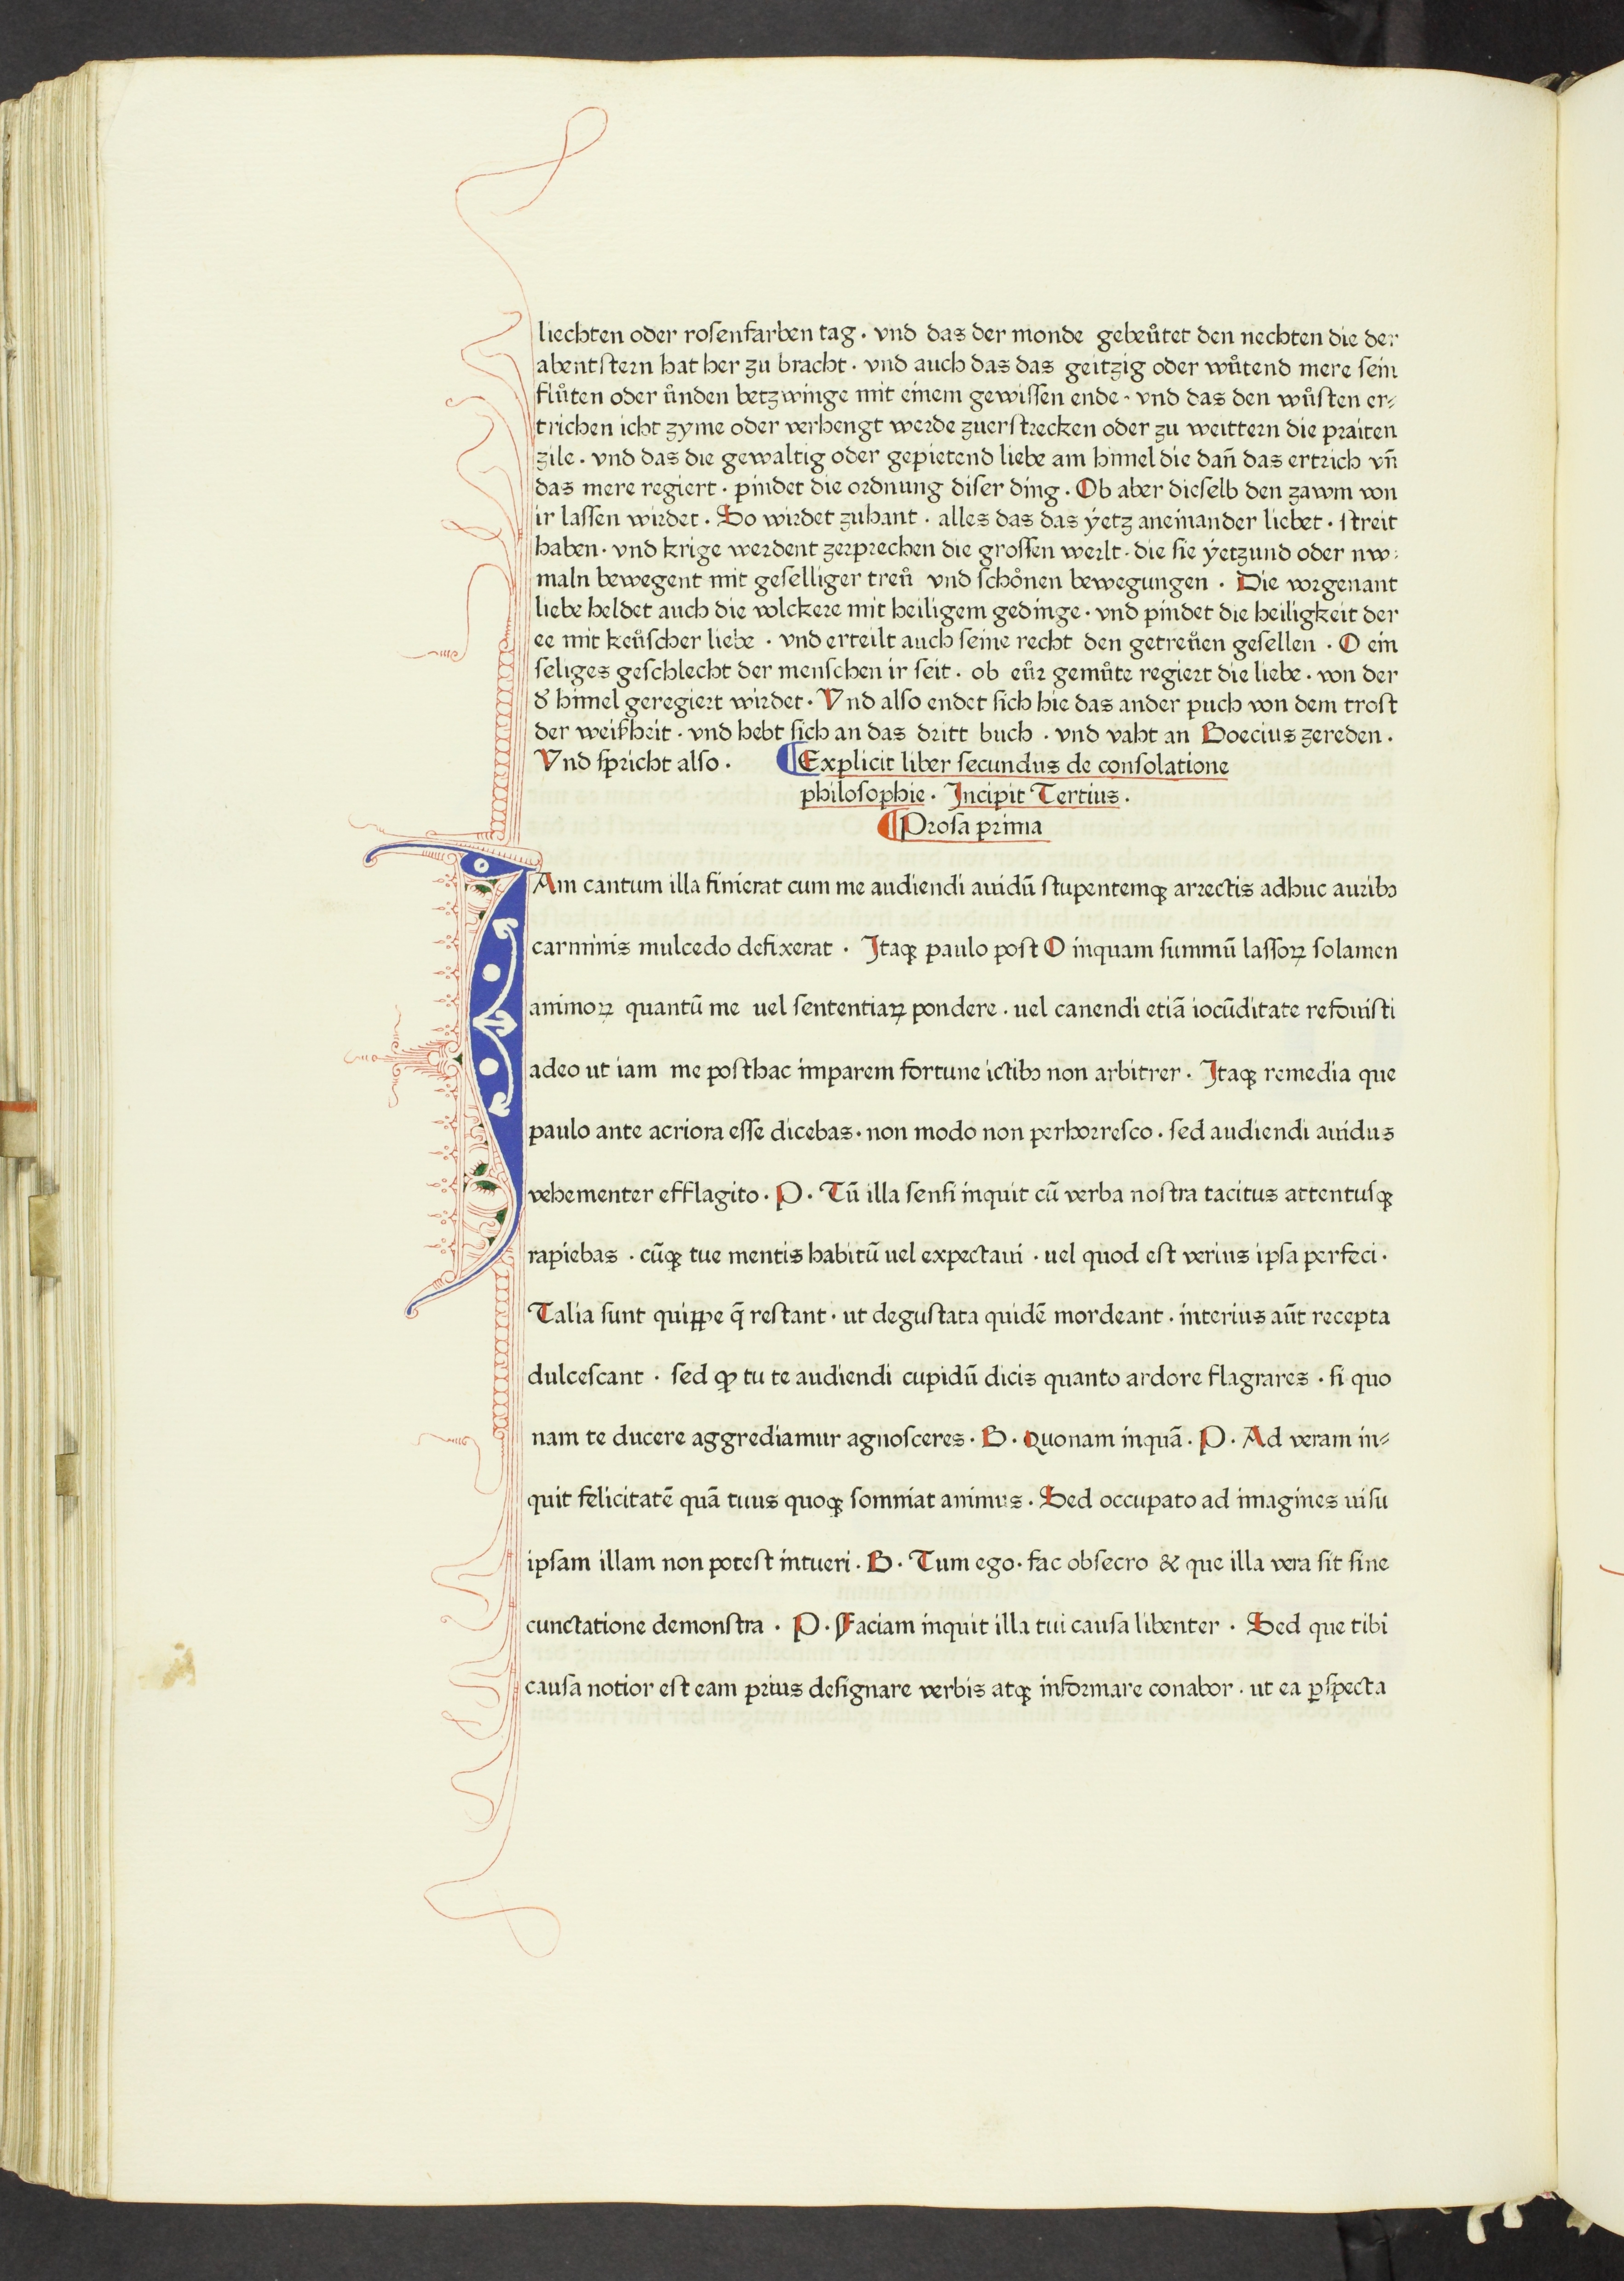 liechten oder rosenfarben tag · vnd das der monde gebeu̇tet den nechten die der
abentstern hat her zu bracht · vnd auch das das geitzig oder wůtend mere sein
flůten oder ůnden betzwinge mit einem gewissen ende · vnd das den wůsten er⸗
trichen icht zyme oder verhengt werde zuerstrecken oder zu weittern die praiten
zile · vnd das die gewaltig oder gepietend liebe am himel die dañ das ertrich vñ
das mere regiert · pindet die ordnung diser ding · Ob aber dieselb den zawm von
ir lassen wirdet · So wirdet zuhant · alles das das ẏetz aneinander liebet · streit
haben · vnd krige werdent zerprechen die grossen werlt · die sie ẏetzund oder nw⸗
maln bewegent mit geselliger treů vnd schoͤnen bewegungen · Die vorgenant
liebe heldet auch die volckere mit heiligem gedinge · vnd pindet die heiligkeit der
ee mit keůscher liebe · vnd erteilt auch seine recht den getreůen gesellen · O ein
seliges geschlecht der menschen ir seit · ob eůr gemůte regiert die liebe · von der
d̕ himel geregiert wirdet · Vnd also endet sich hie das ander puch von dem trost
der weißheit · vnd hebt sich an das dritt buch · vnd vaht an Boecius zereden ·
Vnd spricht also · ¶Explicit liber secundus de consolatione
philosophie · Incipit Tertius ·
¶Prosa prima
IAm cantum illa finierat cum me audiendi auidū stupentemqꝫ arrectis adhuc auribꝯ
carminis mulcedo defixerat · Itaqꝫ paulo post O inquam summū lassoꝝ solamen
animoꝝ quantū me uel sententiaꝝ pondere · uel canendi etiā iocūditate refouisti
adeo ut iam me posthac imparem fortune ictibꝯ non arbitrer · Itaqꝫ remedia que
paulo ante acriora esse dicebas · non modo non perhorresco · sed audiendi auidus
vehementer efflagito · P · Tū illa sensi inquit cū verba nostra tacitus attentusqꝫ
rapiebas · cūqꝫ tue mentis habitū uel expectaui · uel quod est verius ipsa perfeci ·
Talia sunt quiꝑpe q̄ restant · ut degustata quidē mordeant · interius aūt recepta
dulcescant · sed ꝙ tu te audiendi cupidū dicis quanto ardore flagrares · si quo
nam te ducere aggrediamur agnosceres · B · Quonam inquā · P · Ad veram in⸗
quit felicitatē quā tuus quoqꝫ somniat animus · Sed occupato ad imagines uisu
ipsam illam non potest intueri · B · Tum ego · fac obsecro & que illa vera sit sine
cunctatione demonstra · P · Faciam inquit illa tui causa libenter · Sed que tibi
causa notior est eam prius designare verbis atqꝫ informare conabor · ut ea ꝑspecta